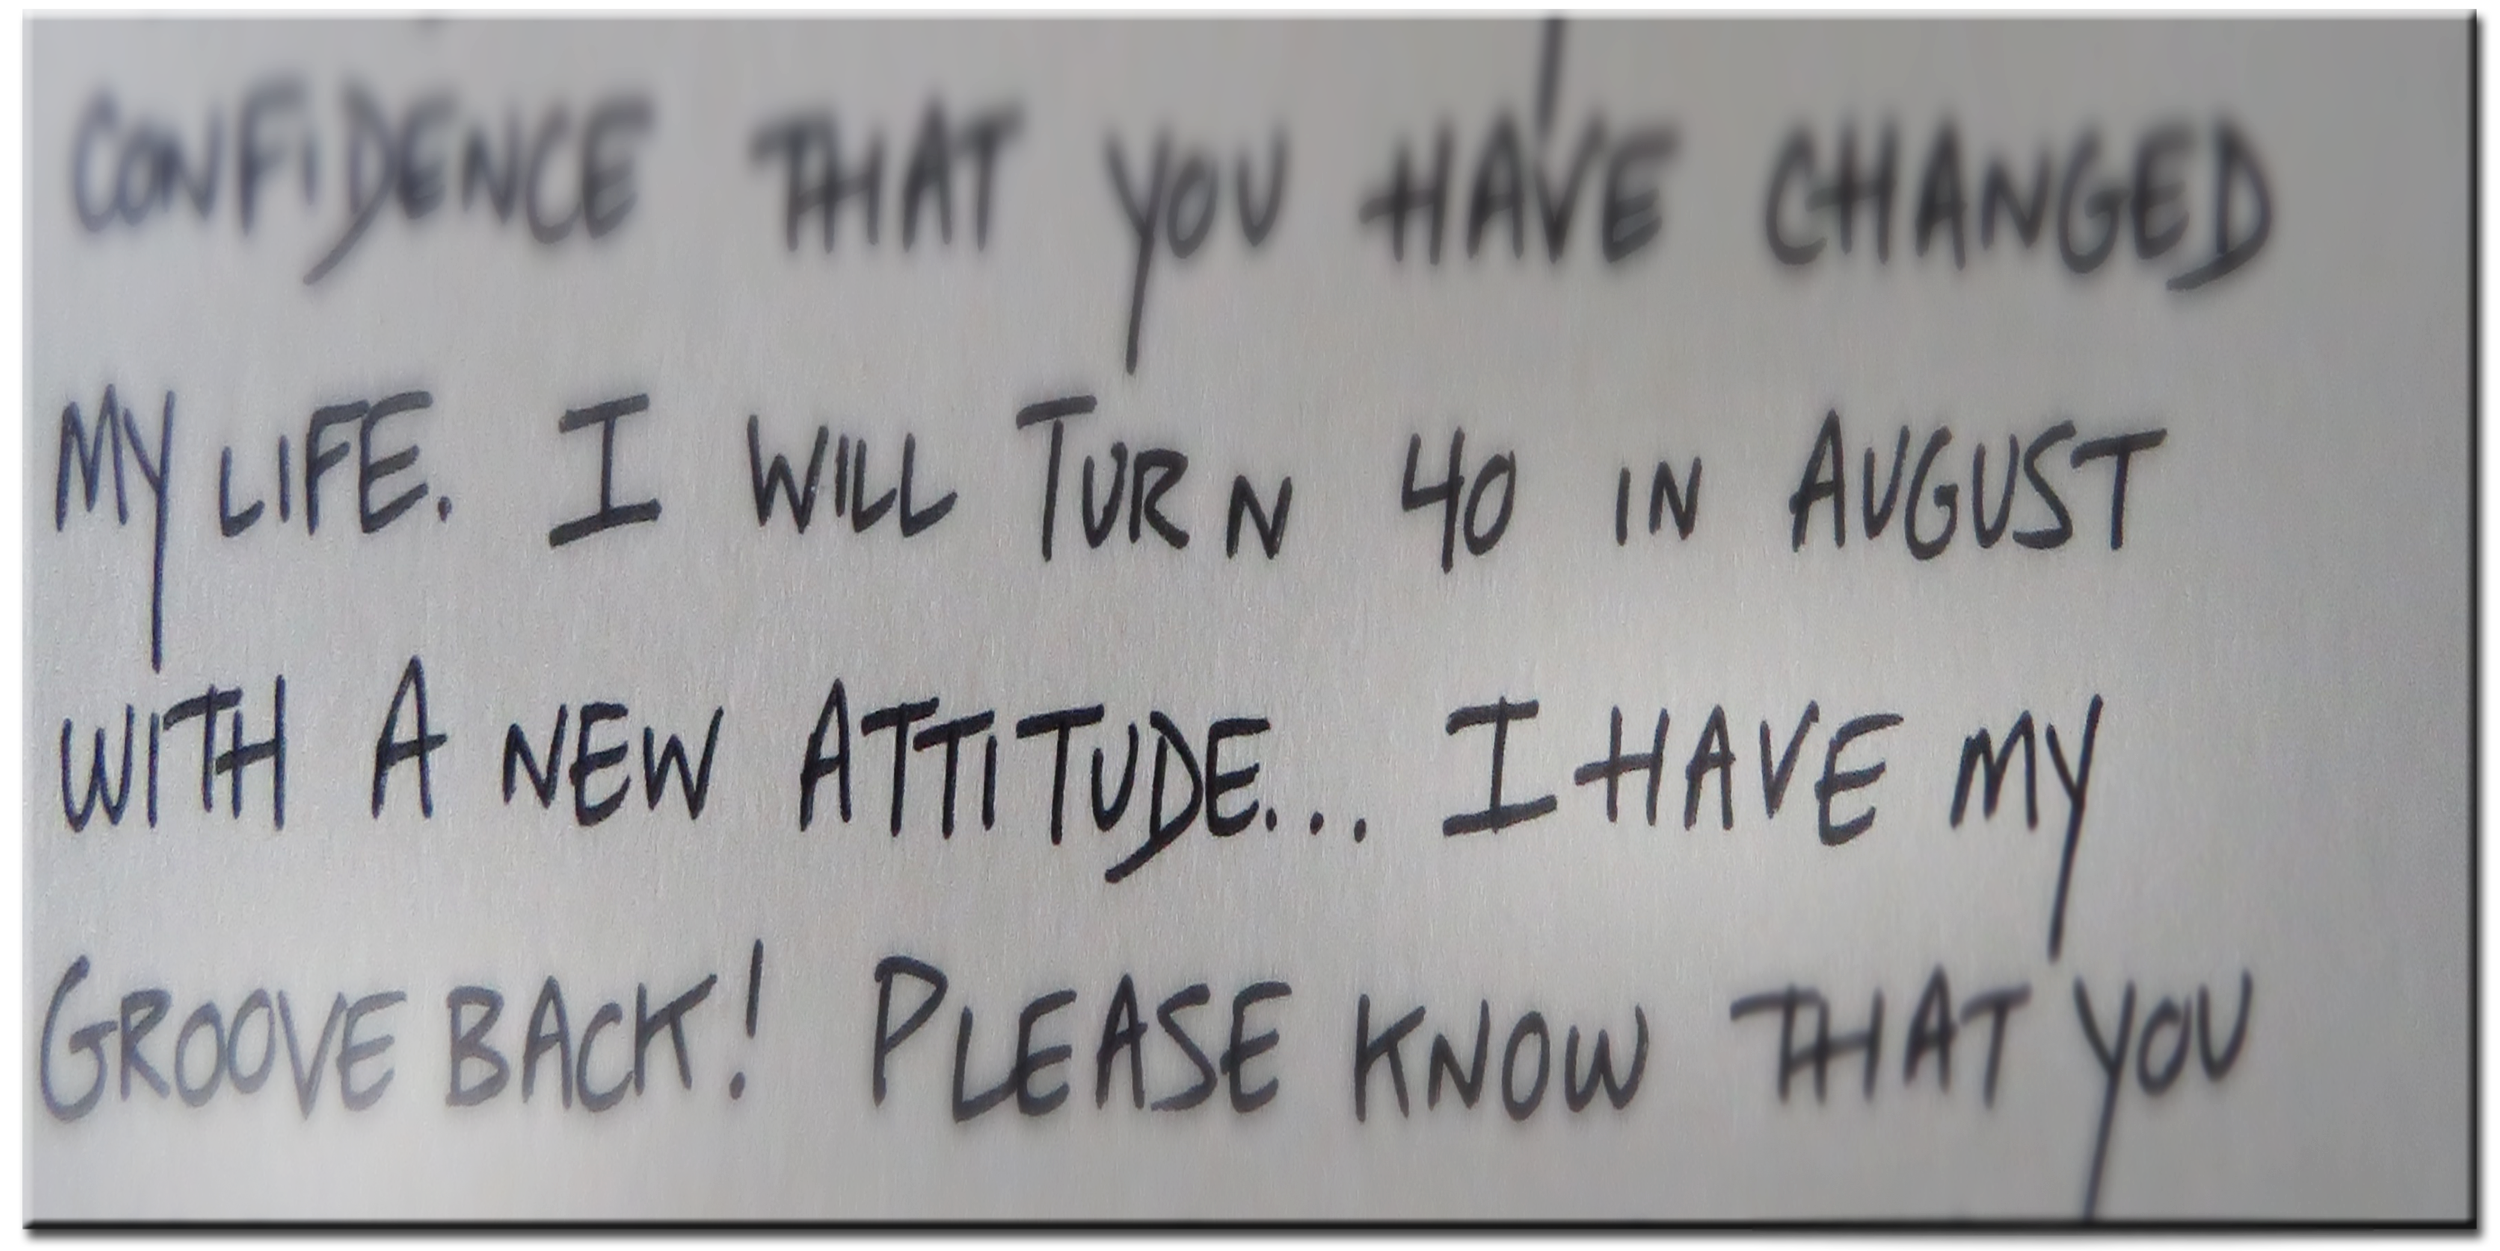 CONFIDENCE THAT YOU HAVE CHANGED
MY LIFE. I WILL TURN 40 IN AUGUST
WITH A NEW ATTITUDE... I HAVE MY
GROOVE BACK! PLEASE KNOW THAT YOU